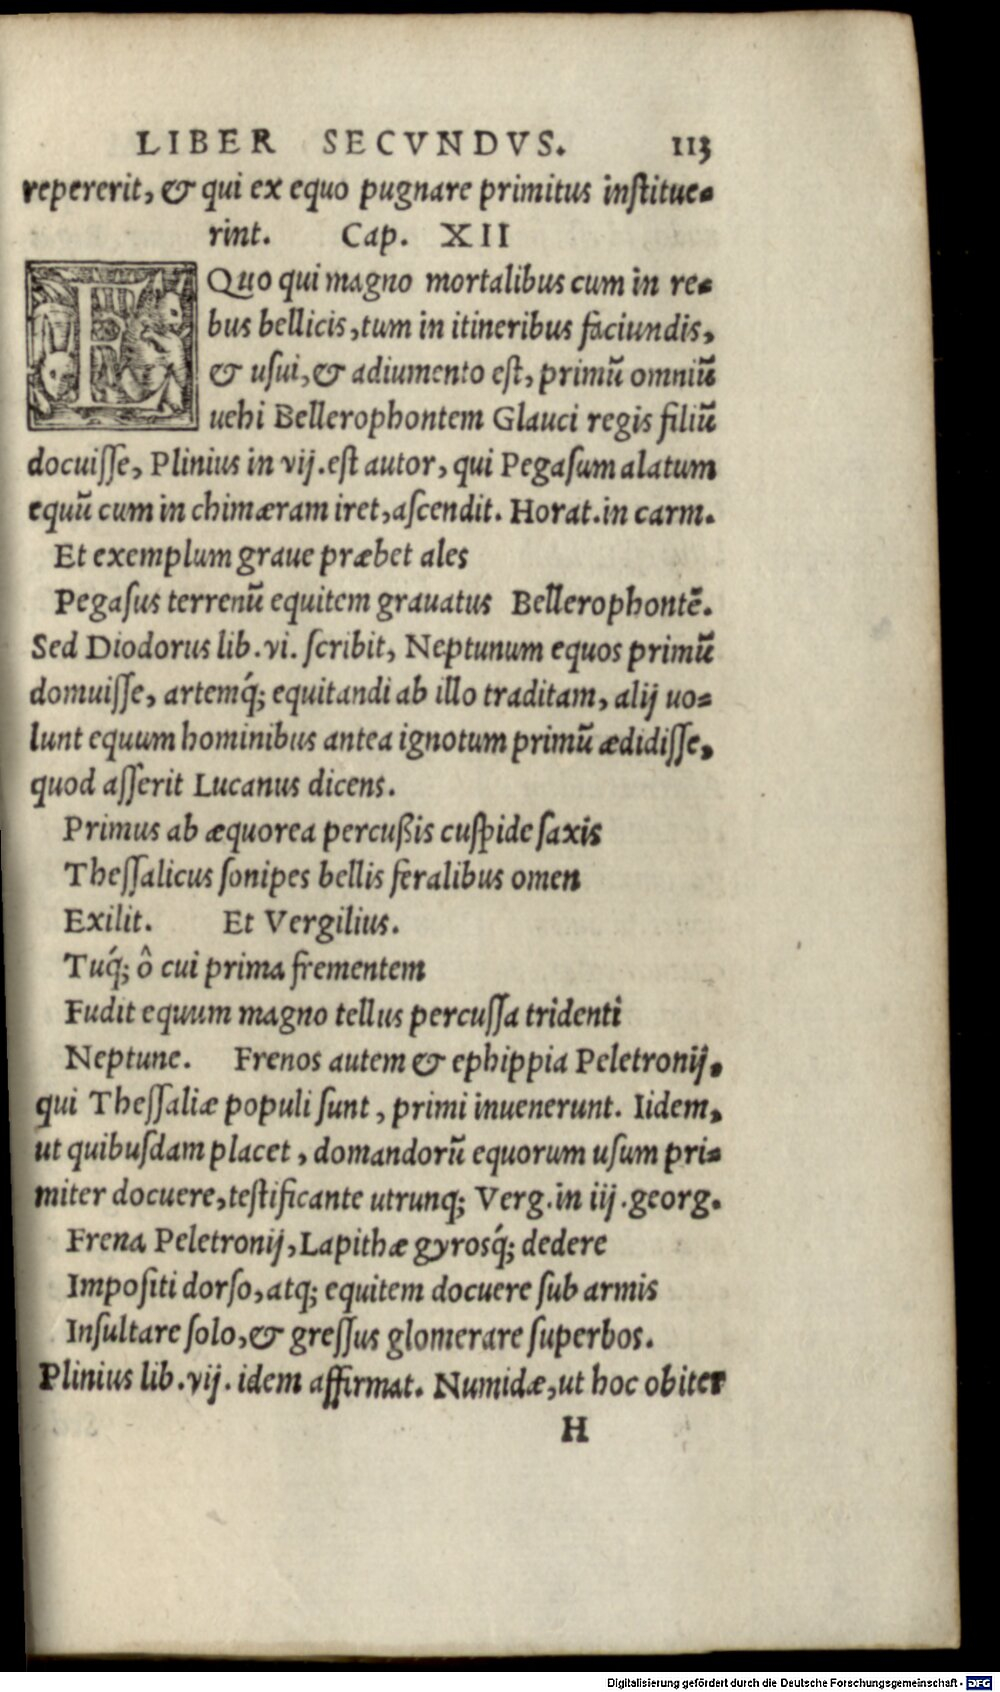 LIBER SECVNDVS. 113
repererit, & qui ex equo pugnare primitus institue-
rint. Cap. XII
EQuo qui magno mortalibus cum in re-
bus bellicis, tum in itineribus faciundis,
& usui, & adiumento est, primũ omniũ
uehi Bellerophontem Glauci regis filiũ
docuisse, Plinius in vij. est autor, qui Pegasum alatum
equũ cum in chimæram iret, ascendit. Horat. in carm.
Et exemplum graue præbet ales
Pegasus terrenũ equitem grauatus Bellerophontẽ.
Sed Diodorus lib. vi. scribit, Neptunum equos primũ
domuisse, artemq́; equitandi ab illo traditam, alij uo-
lunt equum hominibus antea ignotum primũ ædidisse,
quod asserit Lucanus dicens.
Primus ab æquorea percußis cuspide saxis
Thessalicus sonipes bellis feralibus omen
Exilit. Et Vergilius.
Tuq́; ô cui prima frementem
Fudit equum magno tellus percussa tridenti
Neptune. Frenos autem & ephippia Peletronij,
qui Thessaliæ populi sunt, primi inuenerunt. Iidem,
ut quibusdam placet, domandorũ equorum usum pri-
miter docuere, testificante utrunq; Verg. in iij. georg.
Frena Peletronij, Lapithæ gyrosq́; dedere
Impositi dorso, atq; equitem docuere sub armis
Insultare solo, & gressus glomerare superbos.
Plinius lib. vij. idem affirmat. Numidæ, ut hoc obiter
H
Digitalisierung gefördert durch die Deutsche Forschungsgemeinschaft - DFG